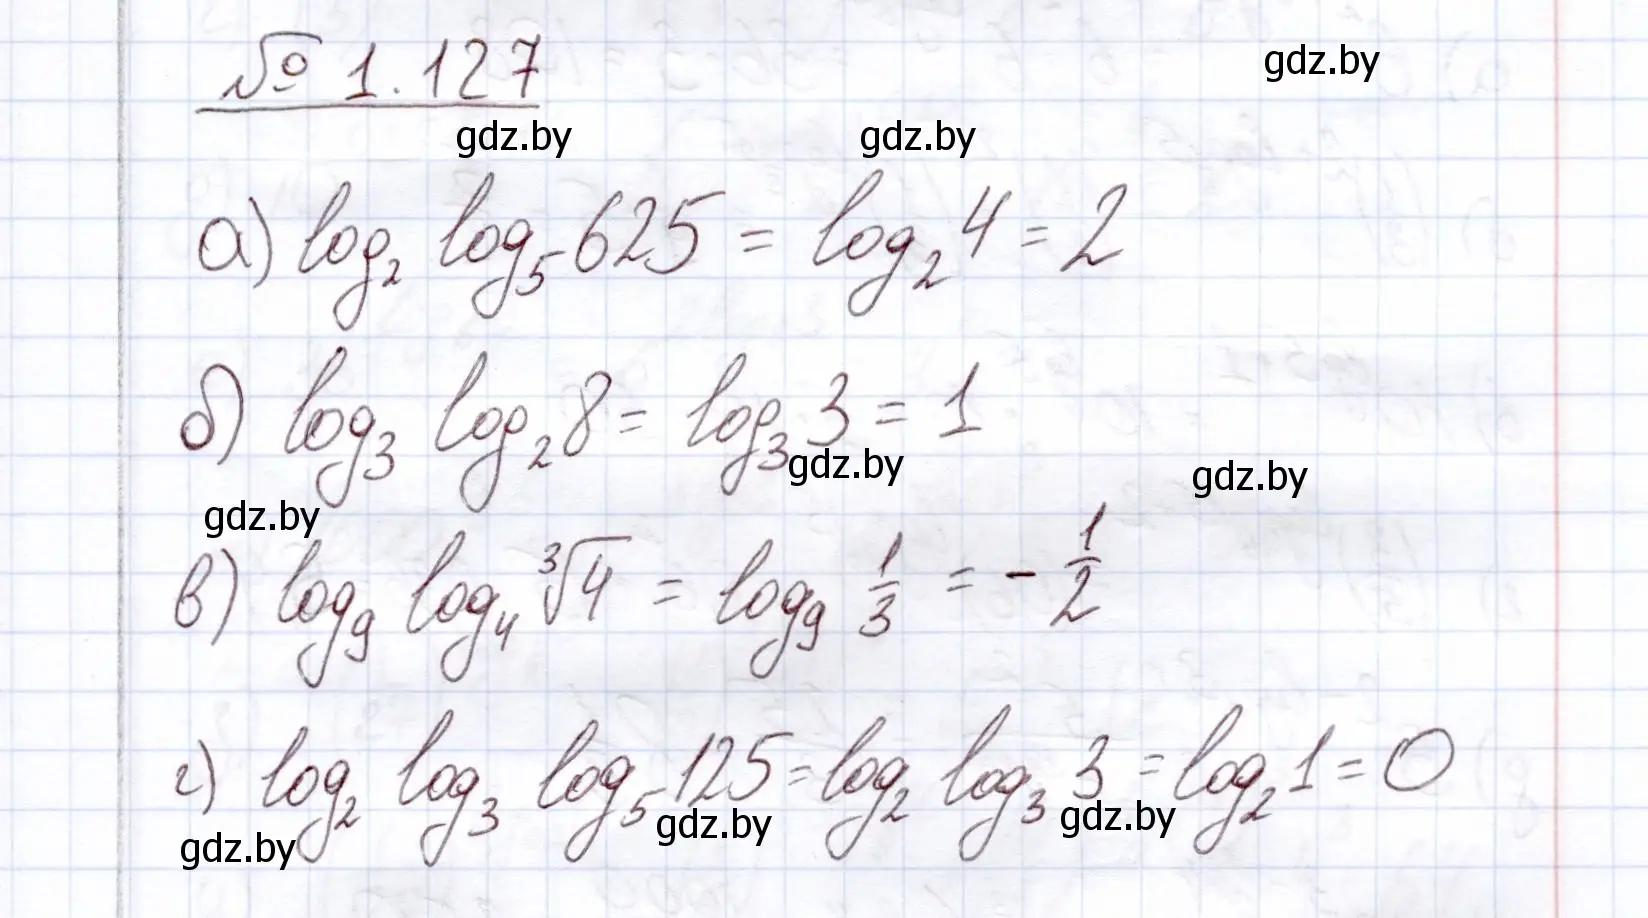 № 1.127
gdz.by
gdz.by gdz.by
а) log₂ log₅ 625 = log₂ 4 = 2
б) log₃ log₂ 8 = log₃ 3 = 1
gdz.by gdz.by
gdz.by
в) log₉ log₄ ∛4 = log₉ 1/3 = - 1/2
г) log₂ log₃ log₅ 125 = log₂ log₃ 3 = log₂ 1 = 0
gdz.by gdz.by gdz.by